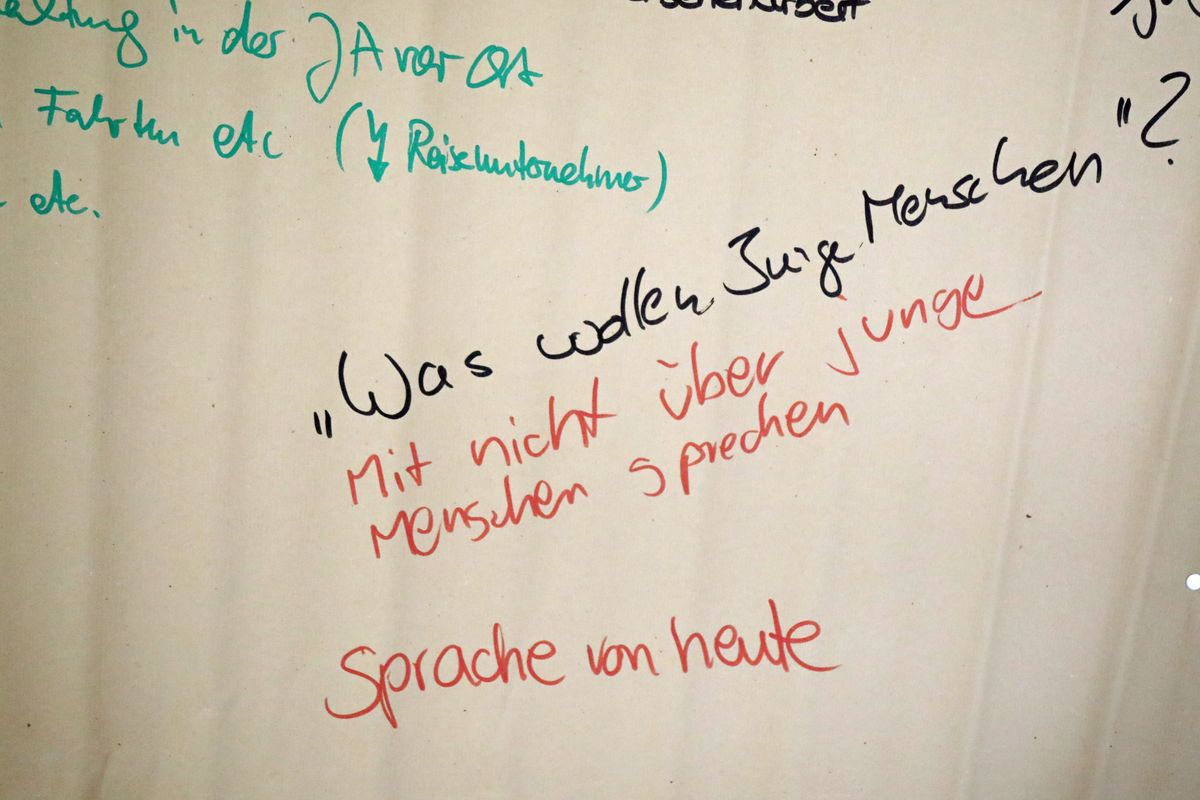 in der JA vor Ort
Fahrten etc (↯ Reiseunternehmer)
etc.
„Was wollen Junge Menschen"?
Mit nicht über junge
Menschen sprechen
Sprache von heute